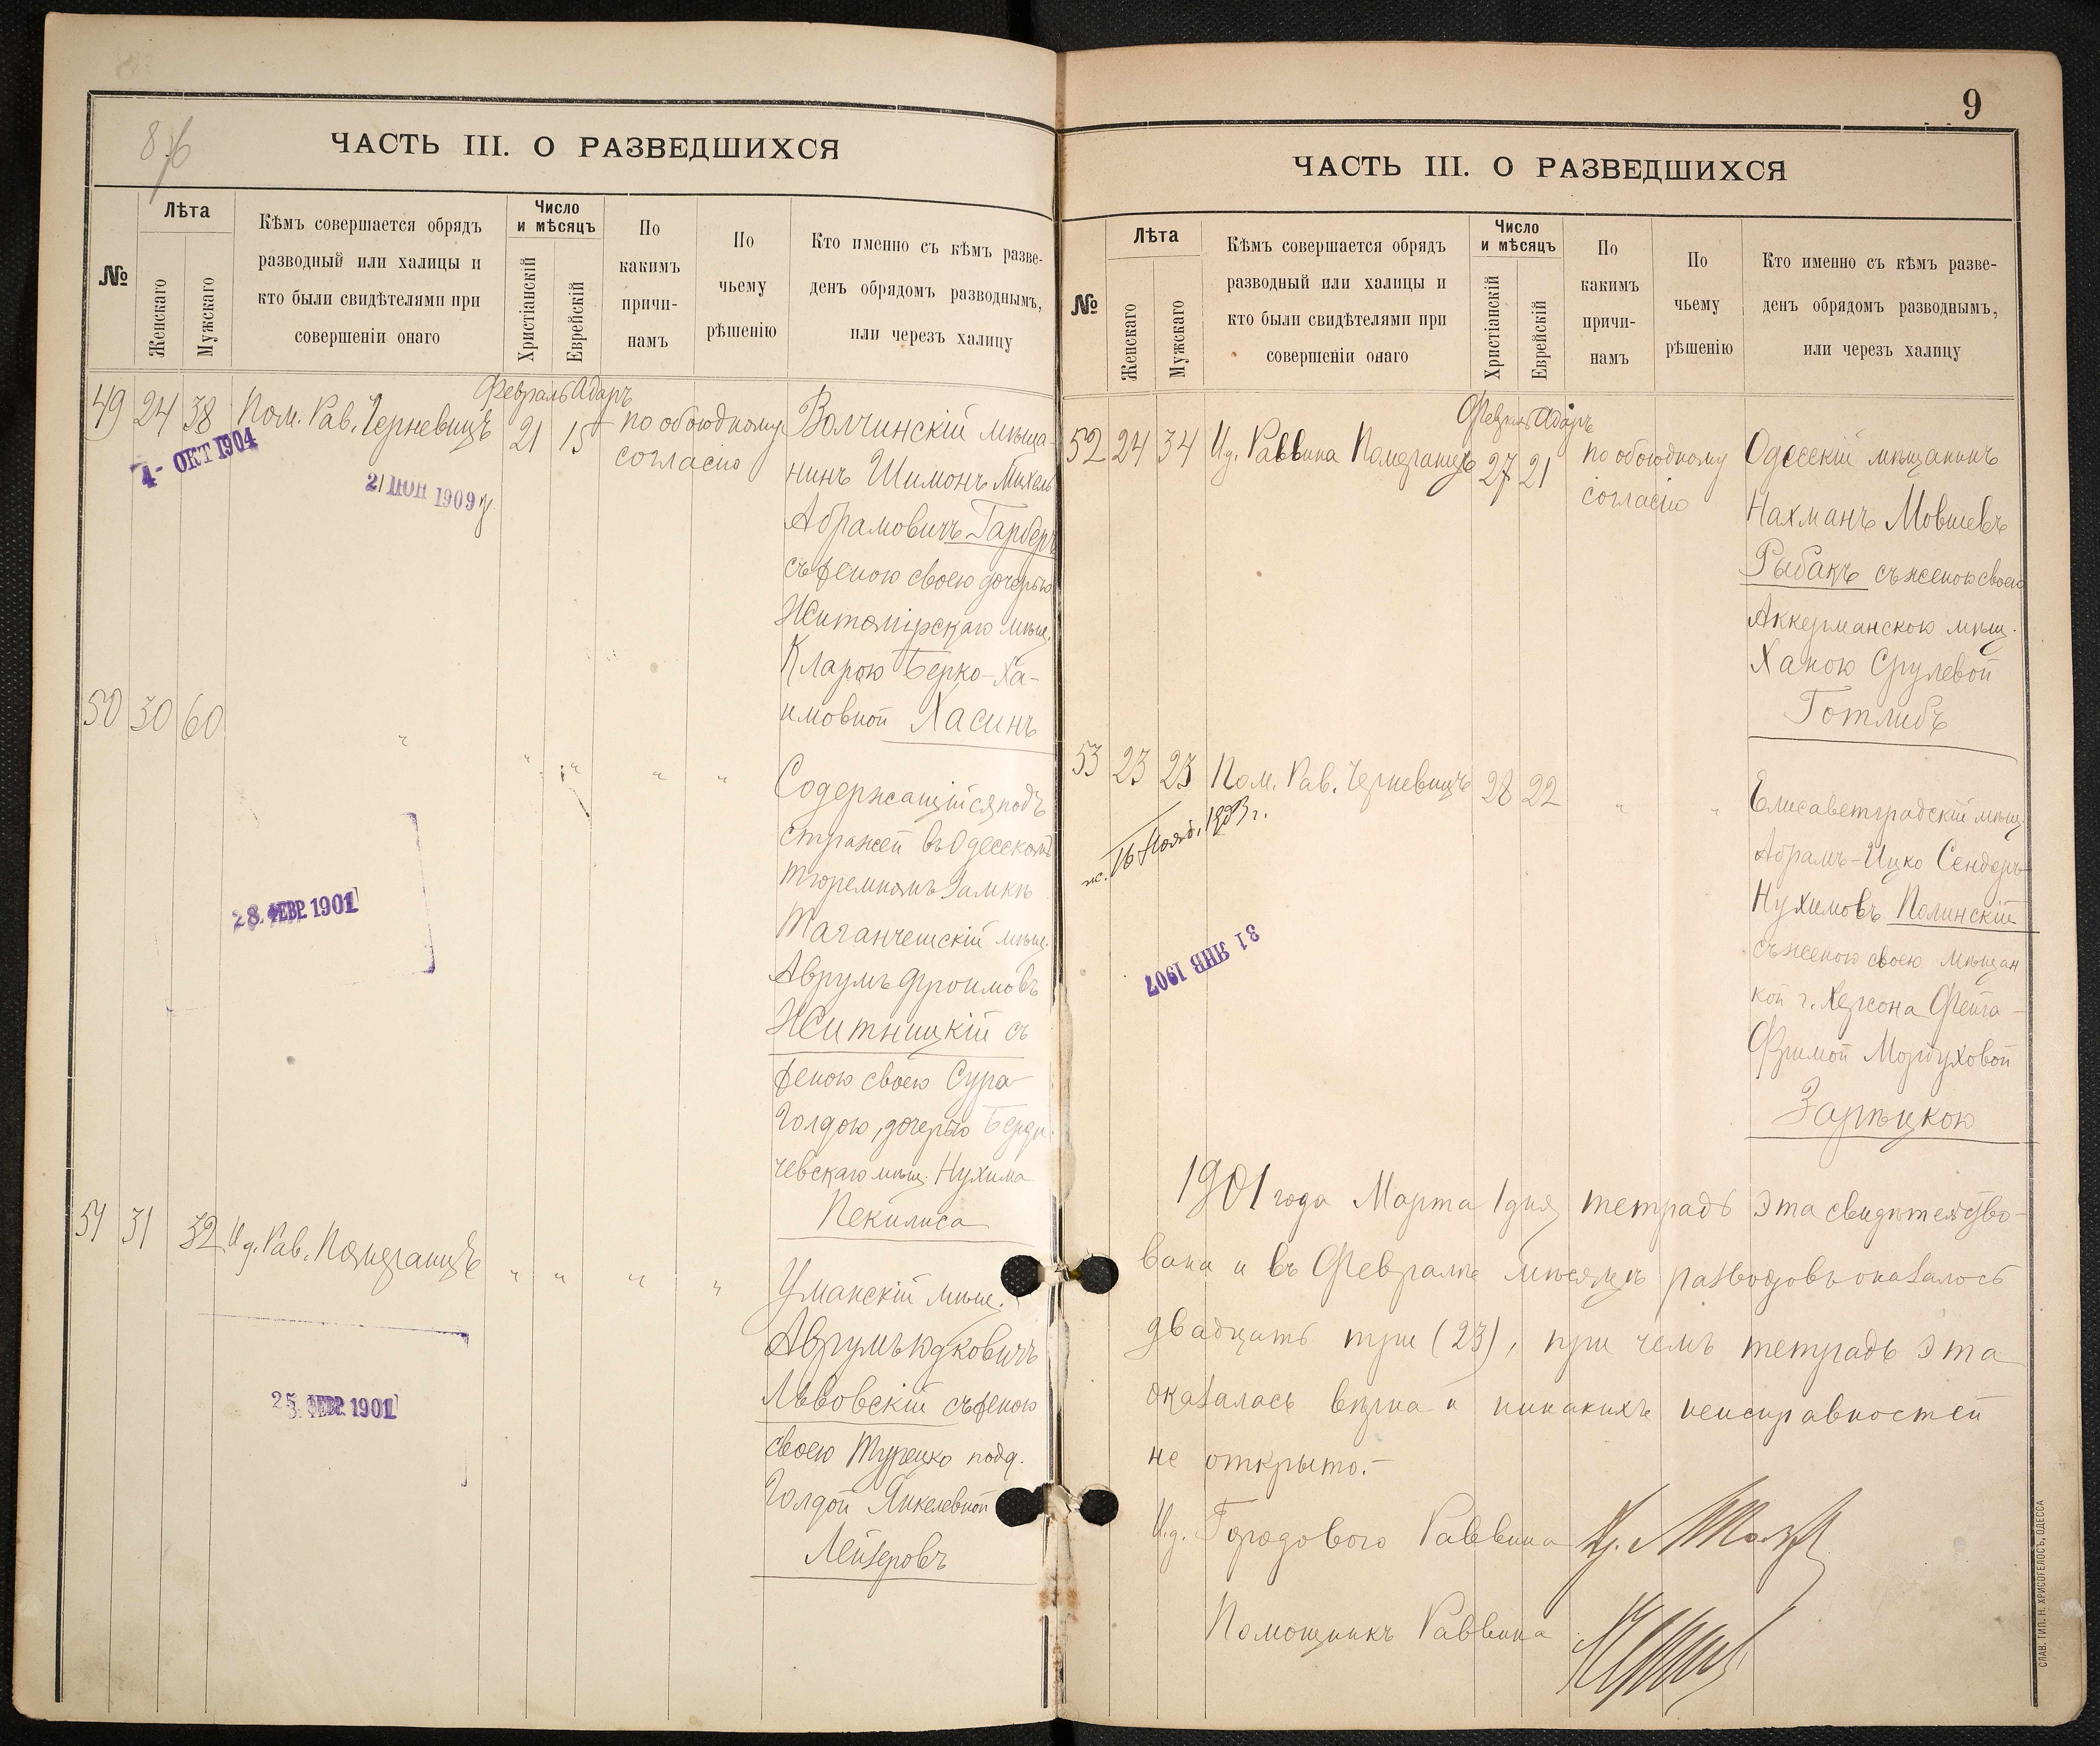 876
ЧАСТЬ III. О РАЗВЕДШИХСЯ
№
Лѣта
Женскаго
Мужскаго
Кѣмъ совершается обрядъ
разводный или халицы и
кто были свидѣтелями при
совершеніи онаго
Число
и мѣсяцъ
Христіанскій
Еврейскій
По
какимъ
причи-
намъ
По
чьему
рѣшенію
Кто именно съ кѣмъ разве-
денъ обрядомъ разводнымъ,
или черезъ халицу
Февраль Адаръ
49 24 38 Пом. Рав. Черневицъ 21 15 по обоюдному
согласію
4- ОКТ 1904
21 ІЮН 1909
Волчинскій мѣща-
нинъ Шимонъ-Михель
Абрамовичъ Гарберъ
съ женою своею дочерью
Житомірскаго мѣщ.
Кларою Берко-Ха-
имовной Хасинъ
50 30 60 " " " " "
Содержащійся подъ
стражей въ Одесскомъ
тюремномъ замкѣ
Таганчешскій мѣщ.
Аврумъ Фроимовъ
Житницкій съ
женою своею Сура-
Голдою, дочерью Берди-
чевскаго мѣщ. Нухима
Пекилиса
28. ФЕВР. 1901
51 31 32 И д. Рав. Померанцъ " " " "
Уманскій мѣщ.
Аврумъ Юдковичъ
Львовскій съ женою
своею Турецко подд.
Голдой Янкелевной
Лейзеровъ
25. ФЕВР. 1901
9
ЧАСТЬ III. О РАЗВЕДШИХСЯ
№
Лѣта
Женскаго
Мужскаго
Кѣмъ совершается обрядъ
разводный или халицы и
кто были свидѣтелями при
совершеніи онаго
Число
и мѣсяцъ
Христіанскій
Еврейскій
По
какимъ
причи-
намъ
По
чьему
рѣшенію
Кто именно съ кѣмъ разве-
денъ обрядомъ разводнымъ,
или черезъ халицу
Февраль Адаръ
52 24 34 И д. Раввина Померанцъ 27 21 по обоюдному
согласію
Одесскій мѣщанинъ
Нахманъ Мовшевъ
Рыбакъ съ женою своею
Аккерманскою мѣщ.
Ханою Срулевой
Готлибъ
53 23 23 Пом. Рав. Черневицъ 28 22 " "
16 Нояб. 1903 г.
31 ЯНВ 1907
Елисаветградскій мѣщ.
Абрамъ-Ицко Сендеръ
Нухимовъ Полинскій
съ женою своею мѣщан
кой г. Херсона Фейга-
Фримой Мордуховой
Зарѣцкою
1901 года Марта 1 дня тетрадь эта свидѣтельство-
вана и въ Февралѣ мѣсяцѣ разводовъ оказалось
двадцать три (23), при чемъ тетрадь эта
оказалась вѣрна и никакихъ неисправностей
не открыто.-
И.д. Городового Раввина
Помощникъ Раввина
СЛАВ. ТИП. Н. ХРИСОГЕЛОСЪ, ОДЕССА